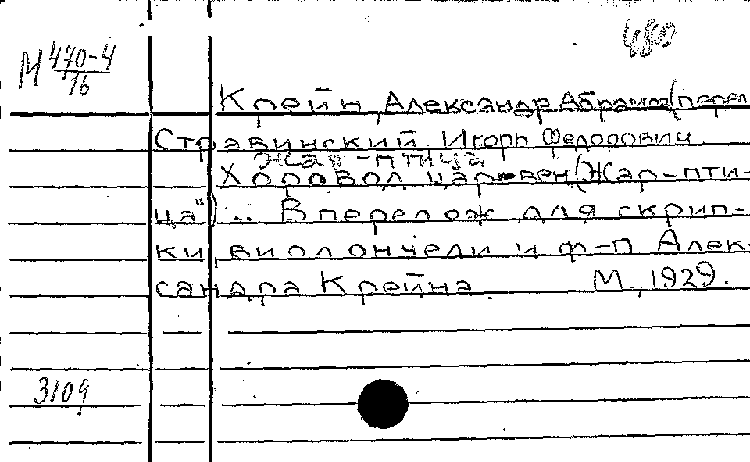 480
М 470-4
16
Крейн, Александр Абрам (перел
Стравинский, Игорь Федорович
Жар-птица
Хоровод царевен (Жар-пти-
ца") .. В перелож для скрип-
ки, виолончели и ф-п Алек-
сандра Крейна. М., 1929.
3109